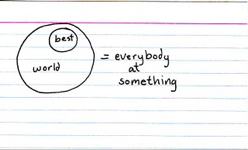 best
world
= everybody
at
something